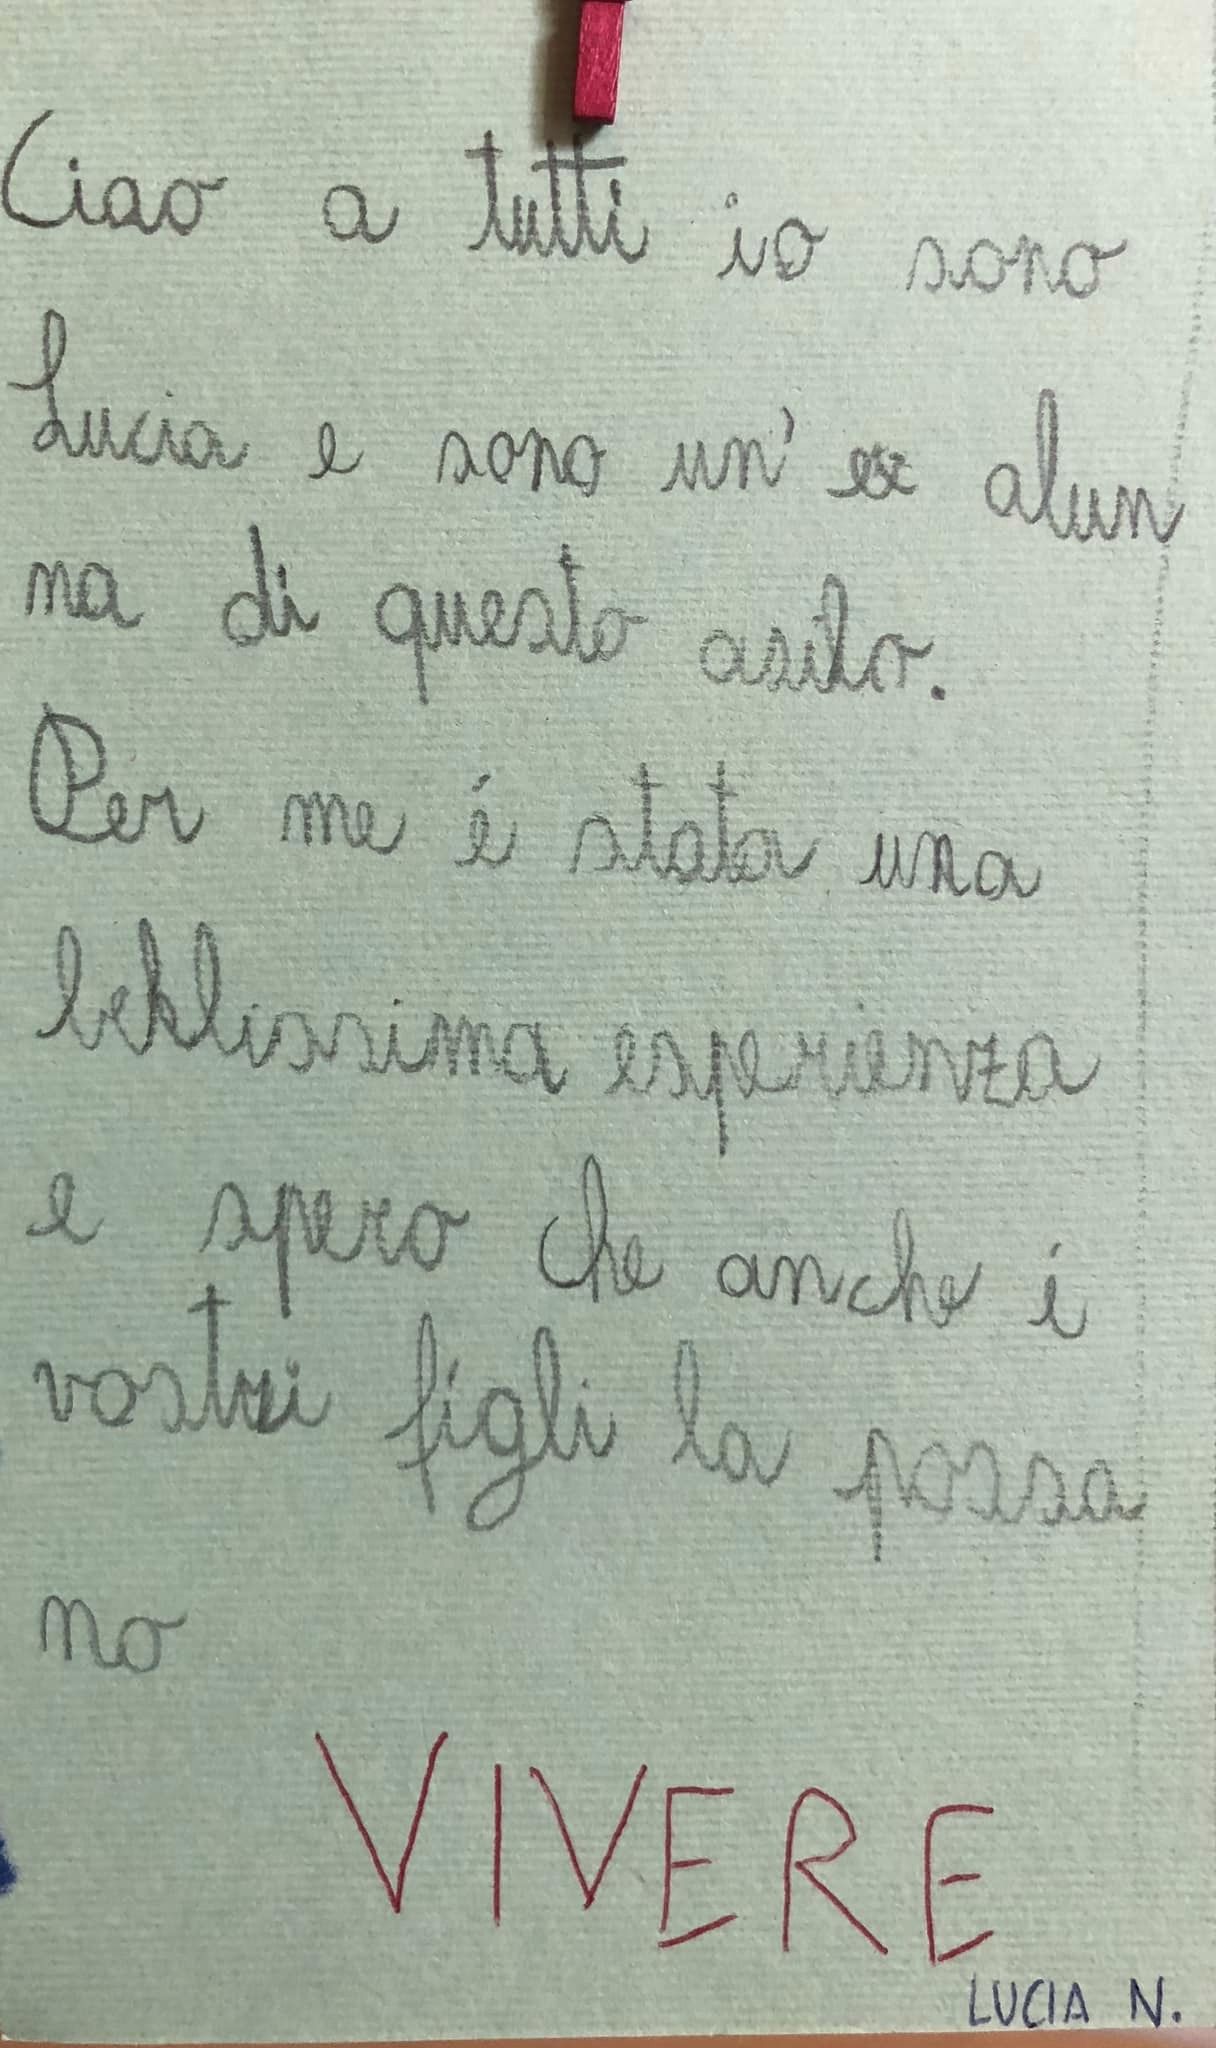 Ciao a tutti io sono
Lucia e sono un' ex alun
na di questo asilo.
Per me é stata una
bekllissima esperienza
e spero che anche i
vostri figli la possa
no
VIVERE
LUCIA N.